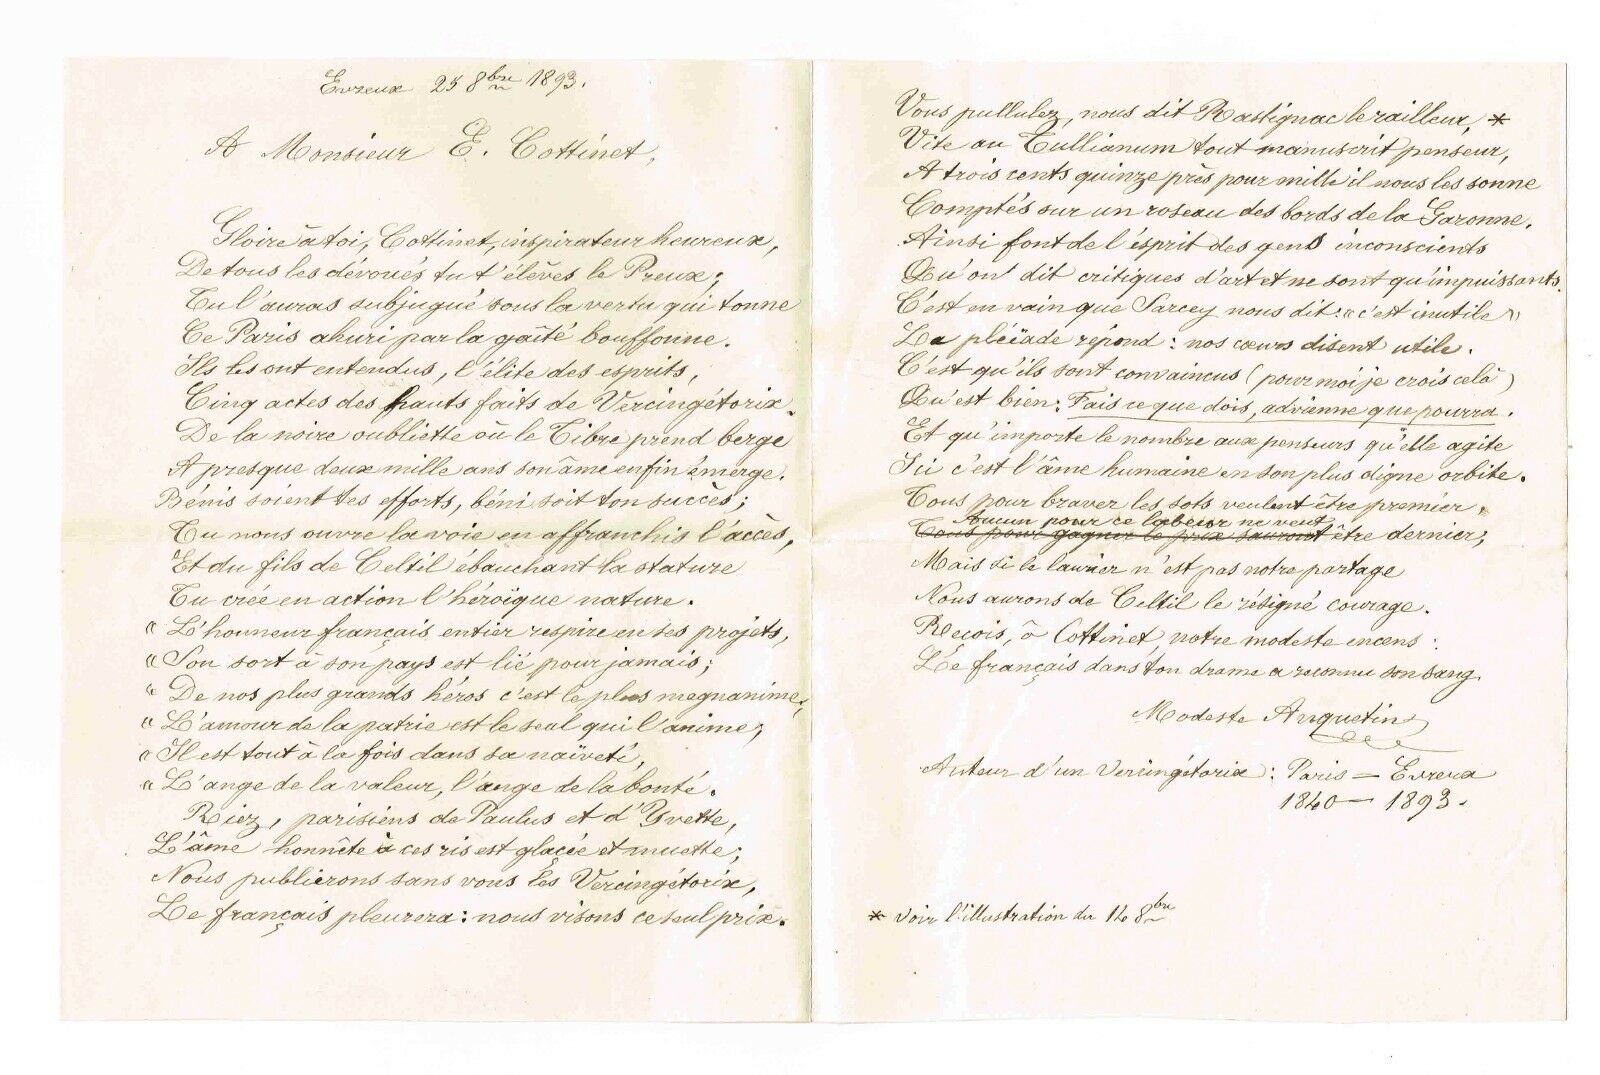 Evreux 25 8bre 1893.
A Monsieur E. Cottinet,
Gloire à toi, Cottinet, inspirateur heureux,
De tous les dévoués tu t'élèves le Preux;
Tu l'auras subjugué sous la vertu qui tonne
Ce Paris ahuri par la gaîté bouffonne.
Ils les ont entendus, l'élite des esprits,
Cinq actes des hauts faits de Vercingétorix.
De la noire oubliette où le Tibre prend berge
A presque deux mille ans son âme enfin émerge.
Bénis soient tes efforts, béni soit ton succès;
Tu nous ouvre la voie en affranchis l'accès,
Et du fils de Celtil ébauchant la stature
Tu crée en action l'héroïque nature.
" L'honneur français entier respire en ses projets,
" Son sort à son pays est lié pour jamais;
" De nos plus grands héros c'est le plus magnanime,
" L'amour de la patrie est le seul qui l'anime;
" Il est tout à la fois dans sa naïveté,
" L'ange de la valeur, l'ange de la bonté.
Riez, parisiens de Paulus et d'Yvette,
L'âme honnête à ces ris est glacée et muette;
Nous publierons sans vous les Vercingétorix,
Le français pleurera: nous visons ce seul prix.
Vous pullulez, nous dit Rastignac le railleur, *
Vite au Tullianum tout manuscrit penseur,
A trois cents quinze près pour mille il nous les sonne
Comptés sur un roseau des bords de la Garonne.
Ainsi font de l'esprit des gens inconscients
Qu'on dit critiques d'art et ne sont qu'impuissants.
C'est en vain que Sarcey nous dit: "c'est inutile"
La pléïade répond: nos cœurs disent utile.
C'est qu'ils sont convaincus (pour moi je crois celà)
Qu'est bien: Fais ce que dois, adrienne que pourra.
Et qu'importe le nombre aux penseurs qu'elle agite
Si c'est l'âme humaine en son plus digne orbite.
Tous pour braver les sots veulent être premier,
Aucun pour ce labeur ne veut
Tous pour gagner le prix sauront être dernier;
Mais si le laurier n'est pas notre partage
Nous aurons de Celtil le résigné courage.
Reçois, ô Cottinet, notre modeste encens:
Le français dans ton drame a reconnu son sang.
Modeste Anquetin
Auteur d'un Vercingétorix: Paris = Evreux
1840 — 1893.
* Voir l'illustration du 14 8bre